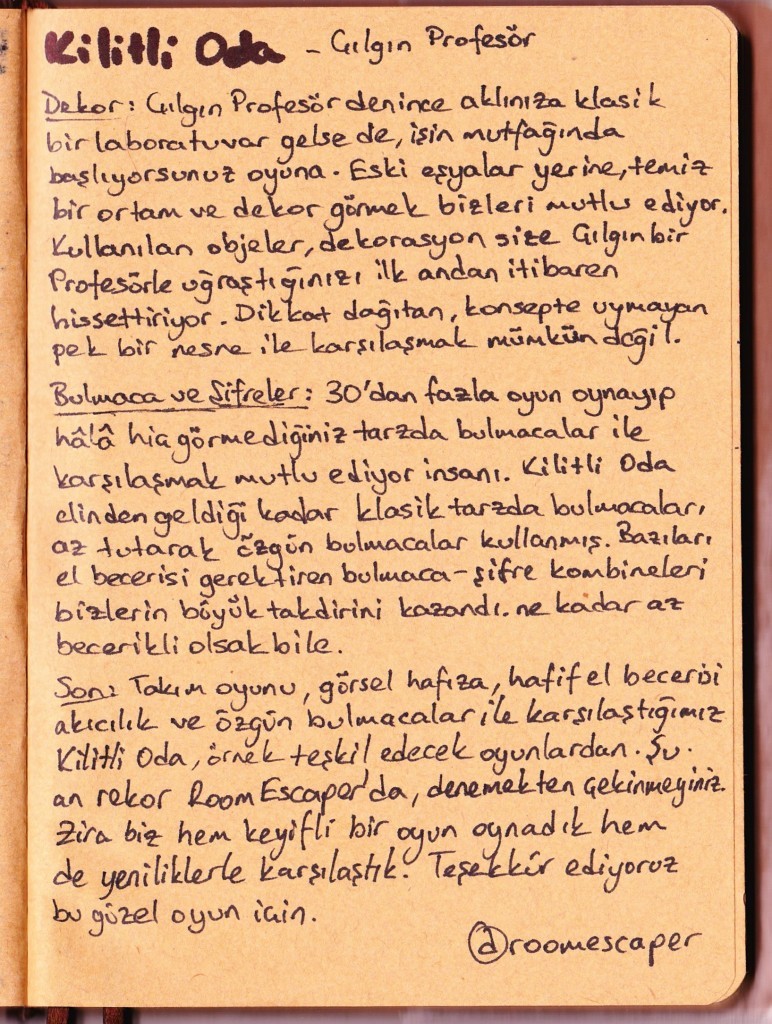 Kilitli Oda - Çılgın Profesör
Dekor: Çılgın Profesör denince aklınıza klasik
bir laboratuvar gelse de, işin mutfağında
başlıyorsunuz oyuna. Eski eşyalar yerine, temiz
bir ortam ve dekor görmek bizleri mutlu ediyor.
Kullanılan objeler, dekorasyon size Çılgın bir
Profesörle uğraştığınızı ilk andan itibaren
hissettiriyor. Dikkat dağıtan, konsepte uymayan
pek bir nesne ile karşılaşmak mümkün değil.
Bulmaca ve Şifreler: 30'dan fazla oyun oynayıp
hâlâ hiç görmediğiniz tarzda bulmacalar ile
karşılaşmak mutlu ediyor insanı. Kilitli Oda
elinden geldiği kadar klasik tarzda bulmacaları
az tutarak özgün bulmacalar kullanmış. Bazıları
el becerisi gerektiren bulmaca-şifre kombineleri
bizlerin büyük takdirini kazandı. ne kadar az
becerikli olsak bile.
Son: Takım oyunu, görsel hafıza, hafif el becerisi
akıcılık ve özgün bulmacalar ile karşılaştığımız
Kilitli Oda, örnek teşkil edecek oyunlardan. Şu.
an rekor RoomEscaper'da, denemekten çekinmeyiniz.
Zira biz hem keyifli bir oyun oynadık hem
de yeniliklerle karşılaştık. Teşekkür ediyoruz
bu güzel oyun için.
@roomescaper